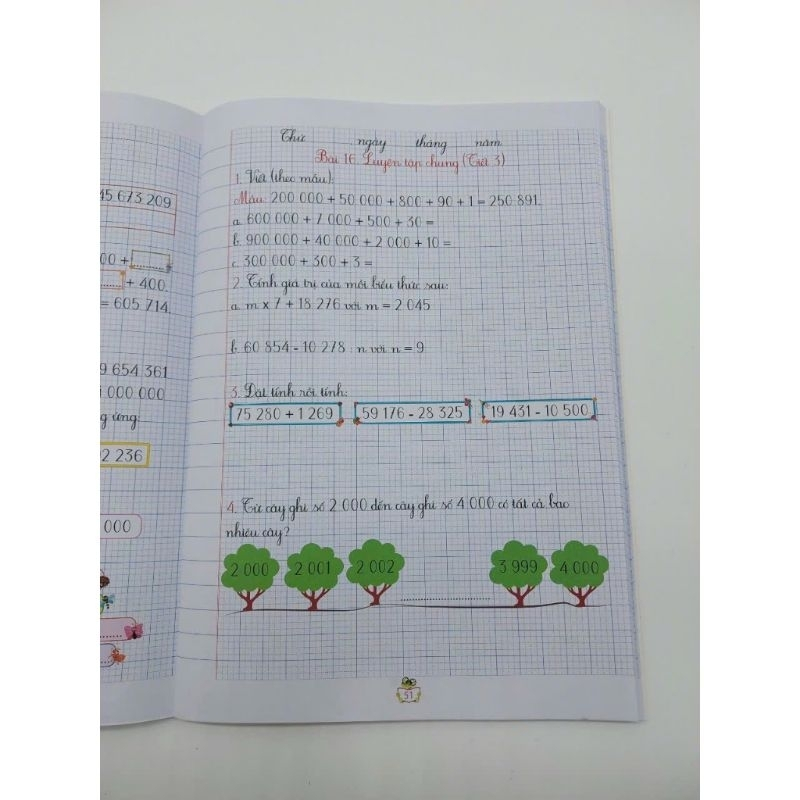 45 673 209
00 +
+ 400.
= 605 714.
9 654 361
000 000
g ứng:
2 236
000
Thứ ngày tháng năm
Bài 16. Luyện tập chung (Tiết 3)
1. Viết (theo mẫu):
Mẫu: 200 000 + 50 000 + 800 + 90 + 1 = 250 891.
a. 600 000 + 7 000 + 500 + 30 =
b. 900 000 + 40 000 + 2 000 + 10 =
c. 300 000 + 300 + 3 =
2. Tính giá trị của mỗi biểu thức sau:
a. m x 7 + 18 276 với m = 2 045
b. 60 854 - 10 278 : n với n = 9
3. Đặt tính rồi tính:
75 280 + 1 269 59 176 - 28 325 19 431 - 10 500
4. Từ cây ghi số 2 000 đến cây ghi số 4 000 có tất cả bao
nhiêu cây?
2 000 2 001 2 002 3 999 4 000
51